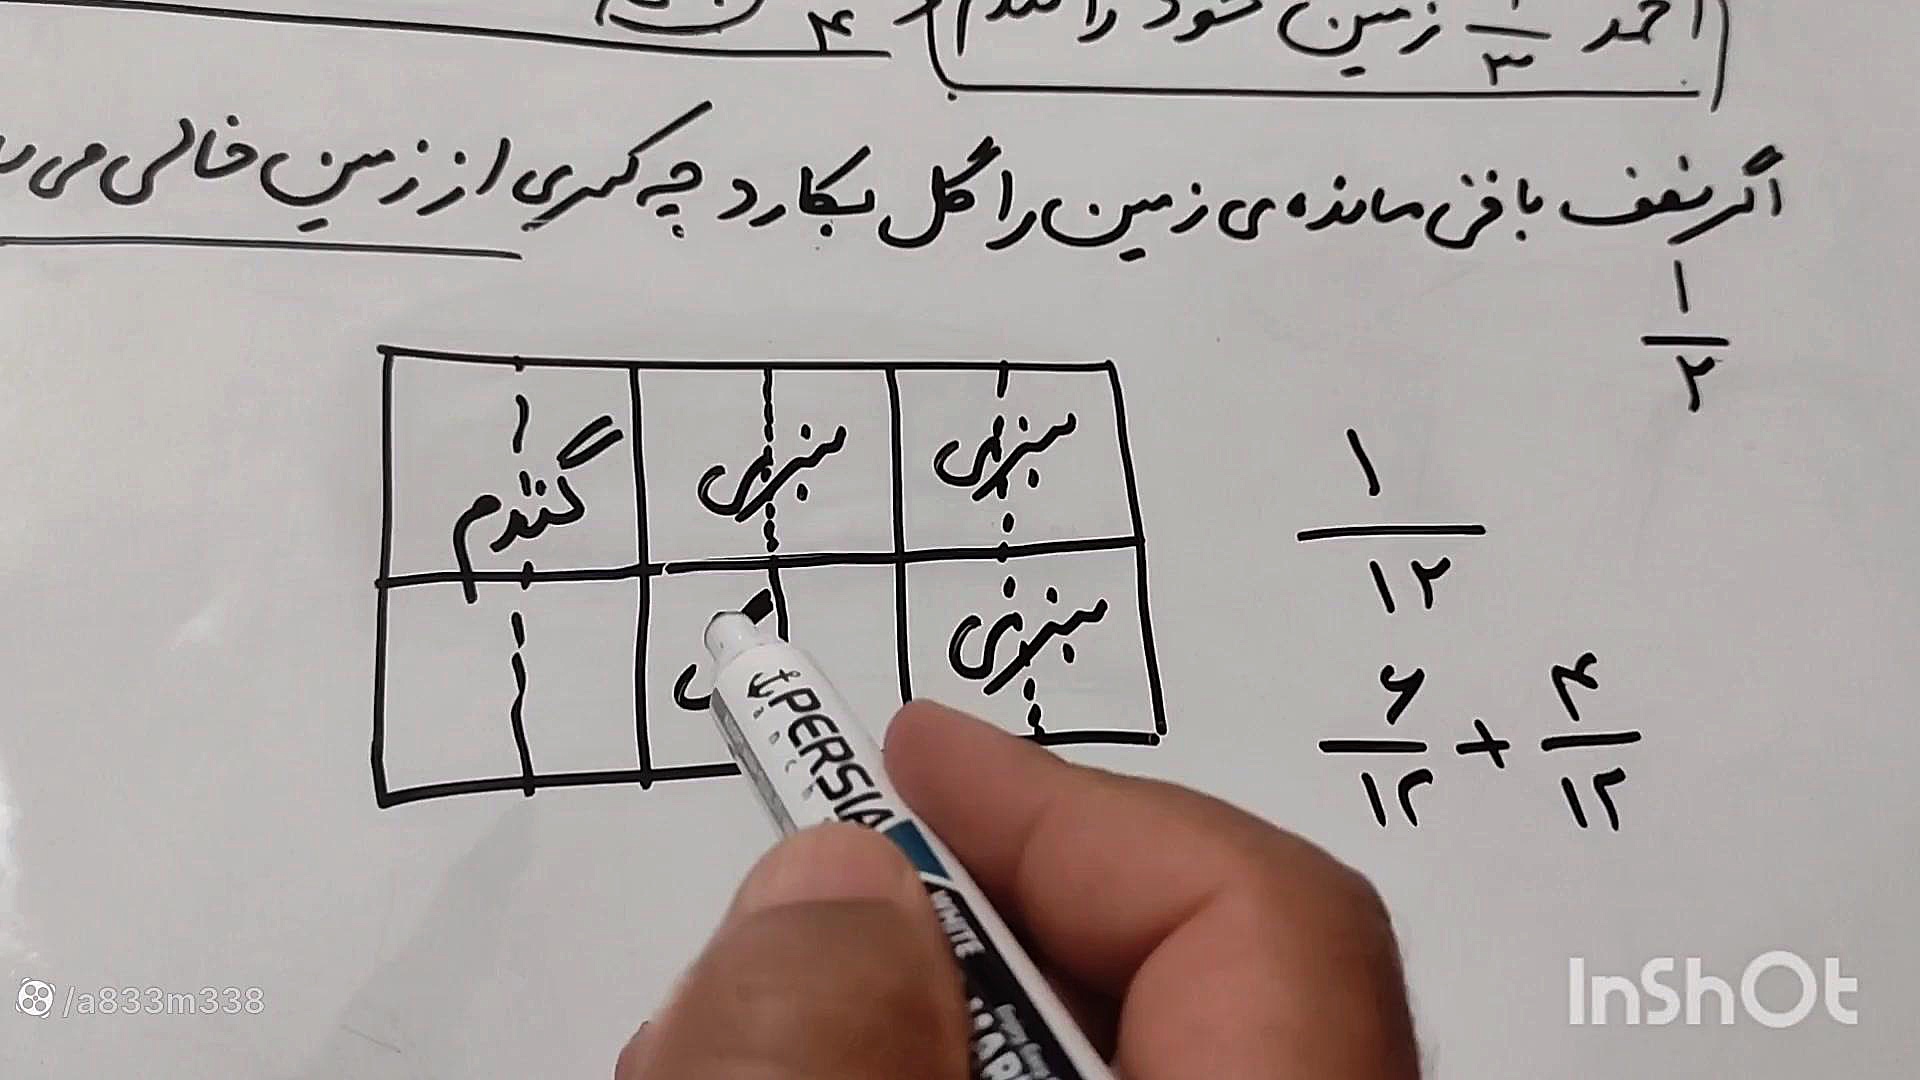 احمد ۱/۳ زمین خود را گندم و
۴
اگر نصف باقی مانده ی زمین را گل بکارد چه کسری از زمین خالی می
۱/۲
گندم سبزی سبزی
سبزی
۱/۱۲
۶/۱۲ + ۴/۱۲
PERSIA
WHITE
/a833m338
InShOt